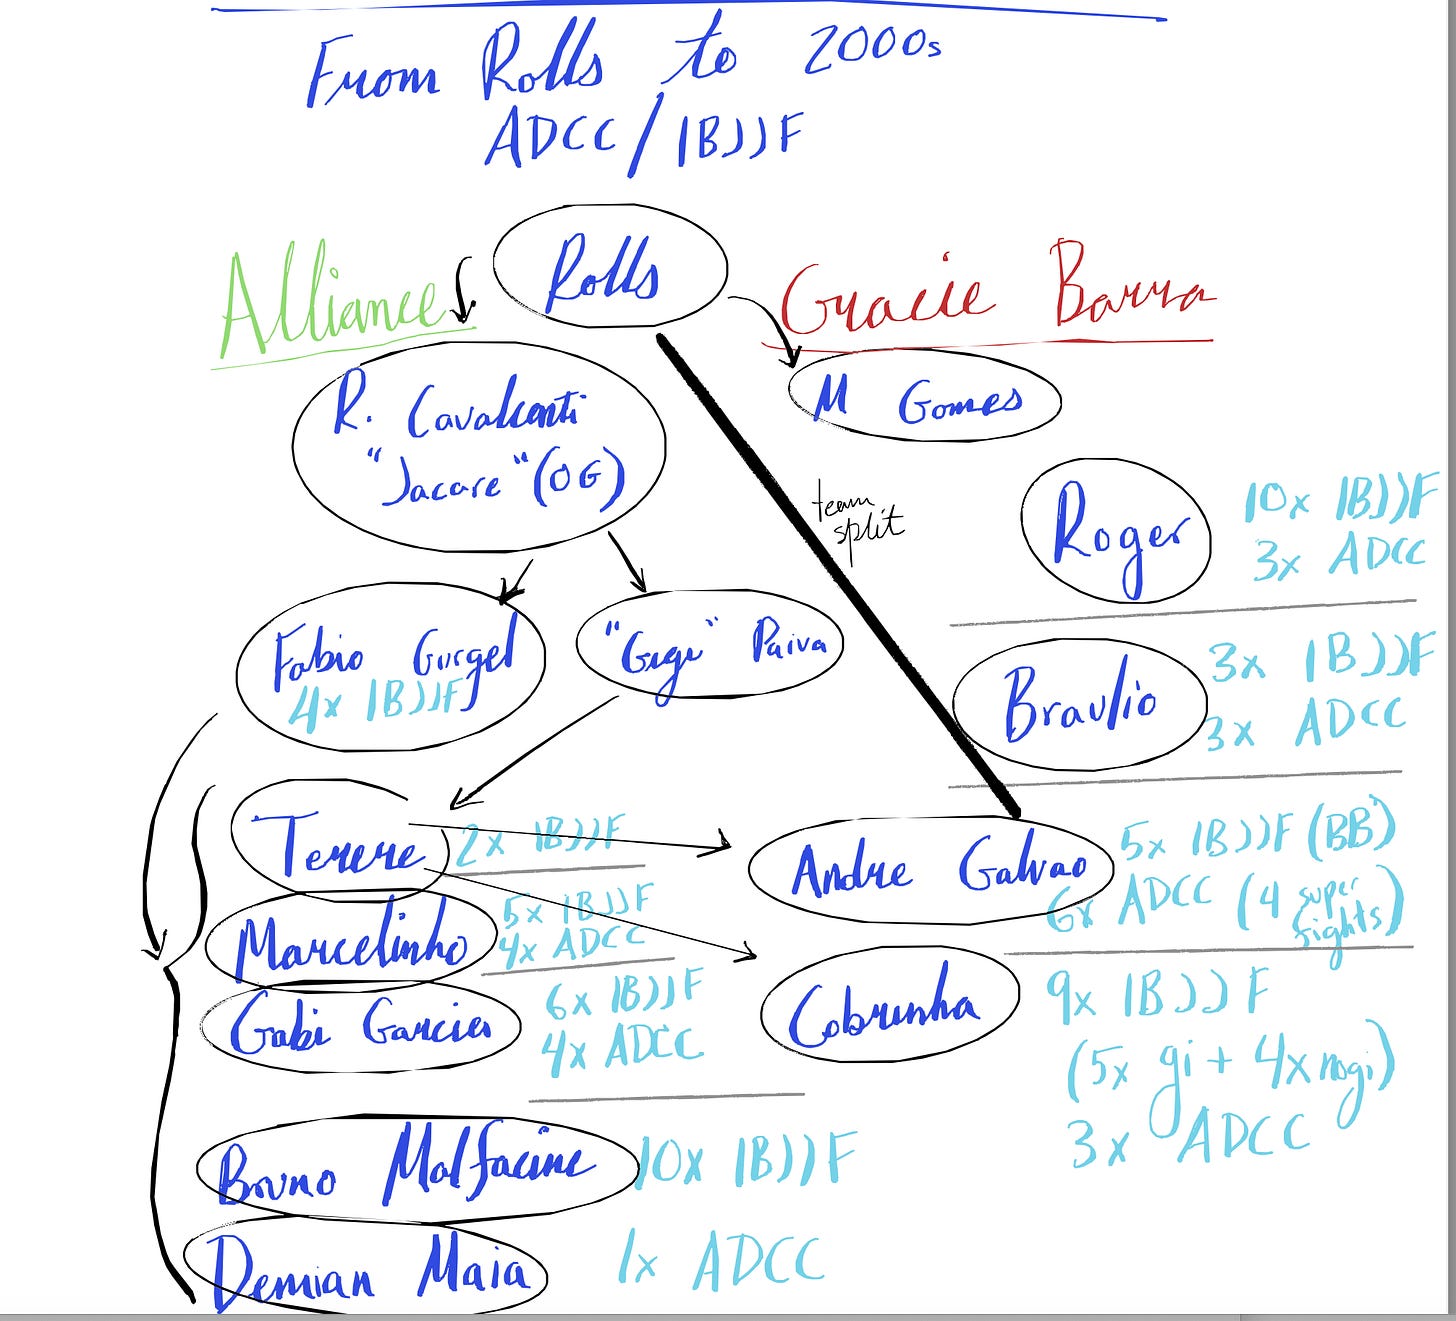 From Rolls to 2000s
ADCC/IBJJF
Rolls
Alliance
Gracie Barra
R. Cavalcanti
"Jacare" (OG)
M Gomes
team
split
Roger
10x IBJJF
3x ADCC
Fabio Gurgel
4x IBJJF
"Gigi" Paiva
Braulio
3x IBJJF
3x ADCC
Terere
2x IBJJF
Andre Galvao
5x IBJJF (BB)
6x ADCC (4 super
fights)
Marcelinho
5x IBJJF
4x ADCC
Gabi Garcia
6x IBJJF
4x ADCC
Cobrinha
9x IBJJF
(5x gi + 4x nogi)
3x ADCC
Bruno Malfacine
10x IBJJF
Demian Maia
1x ADCC